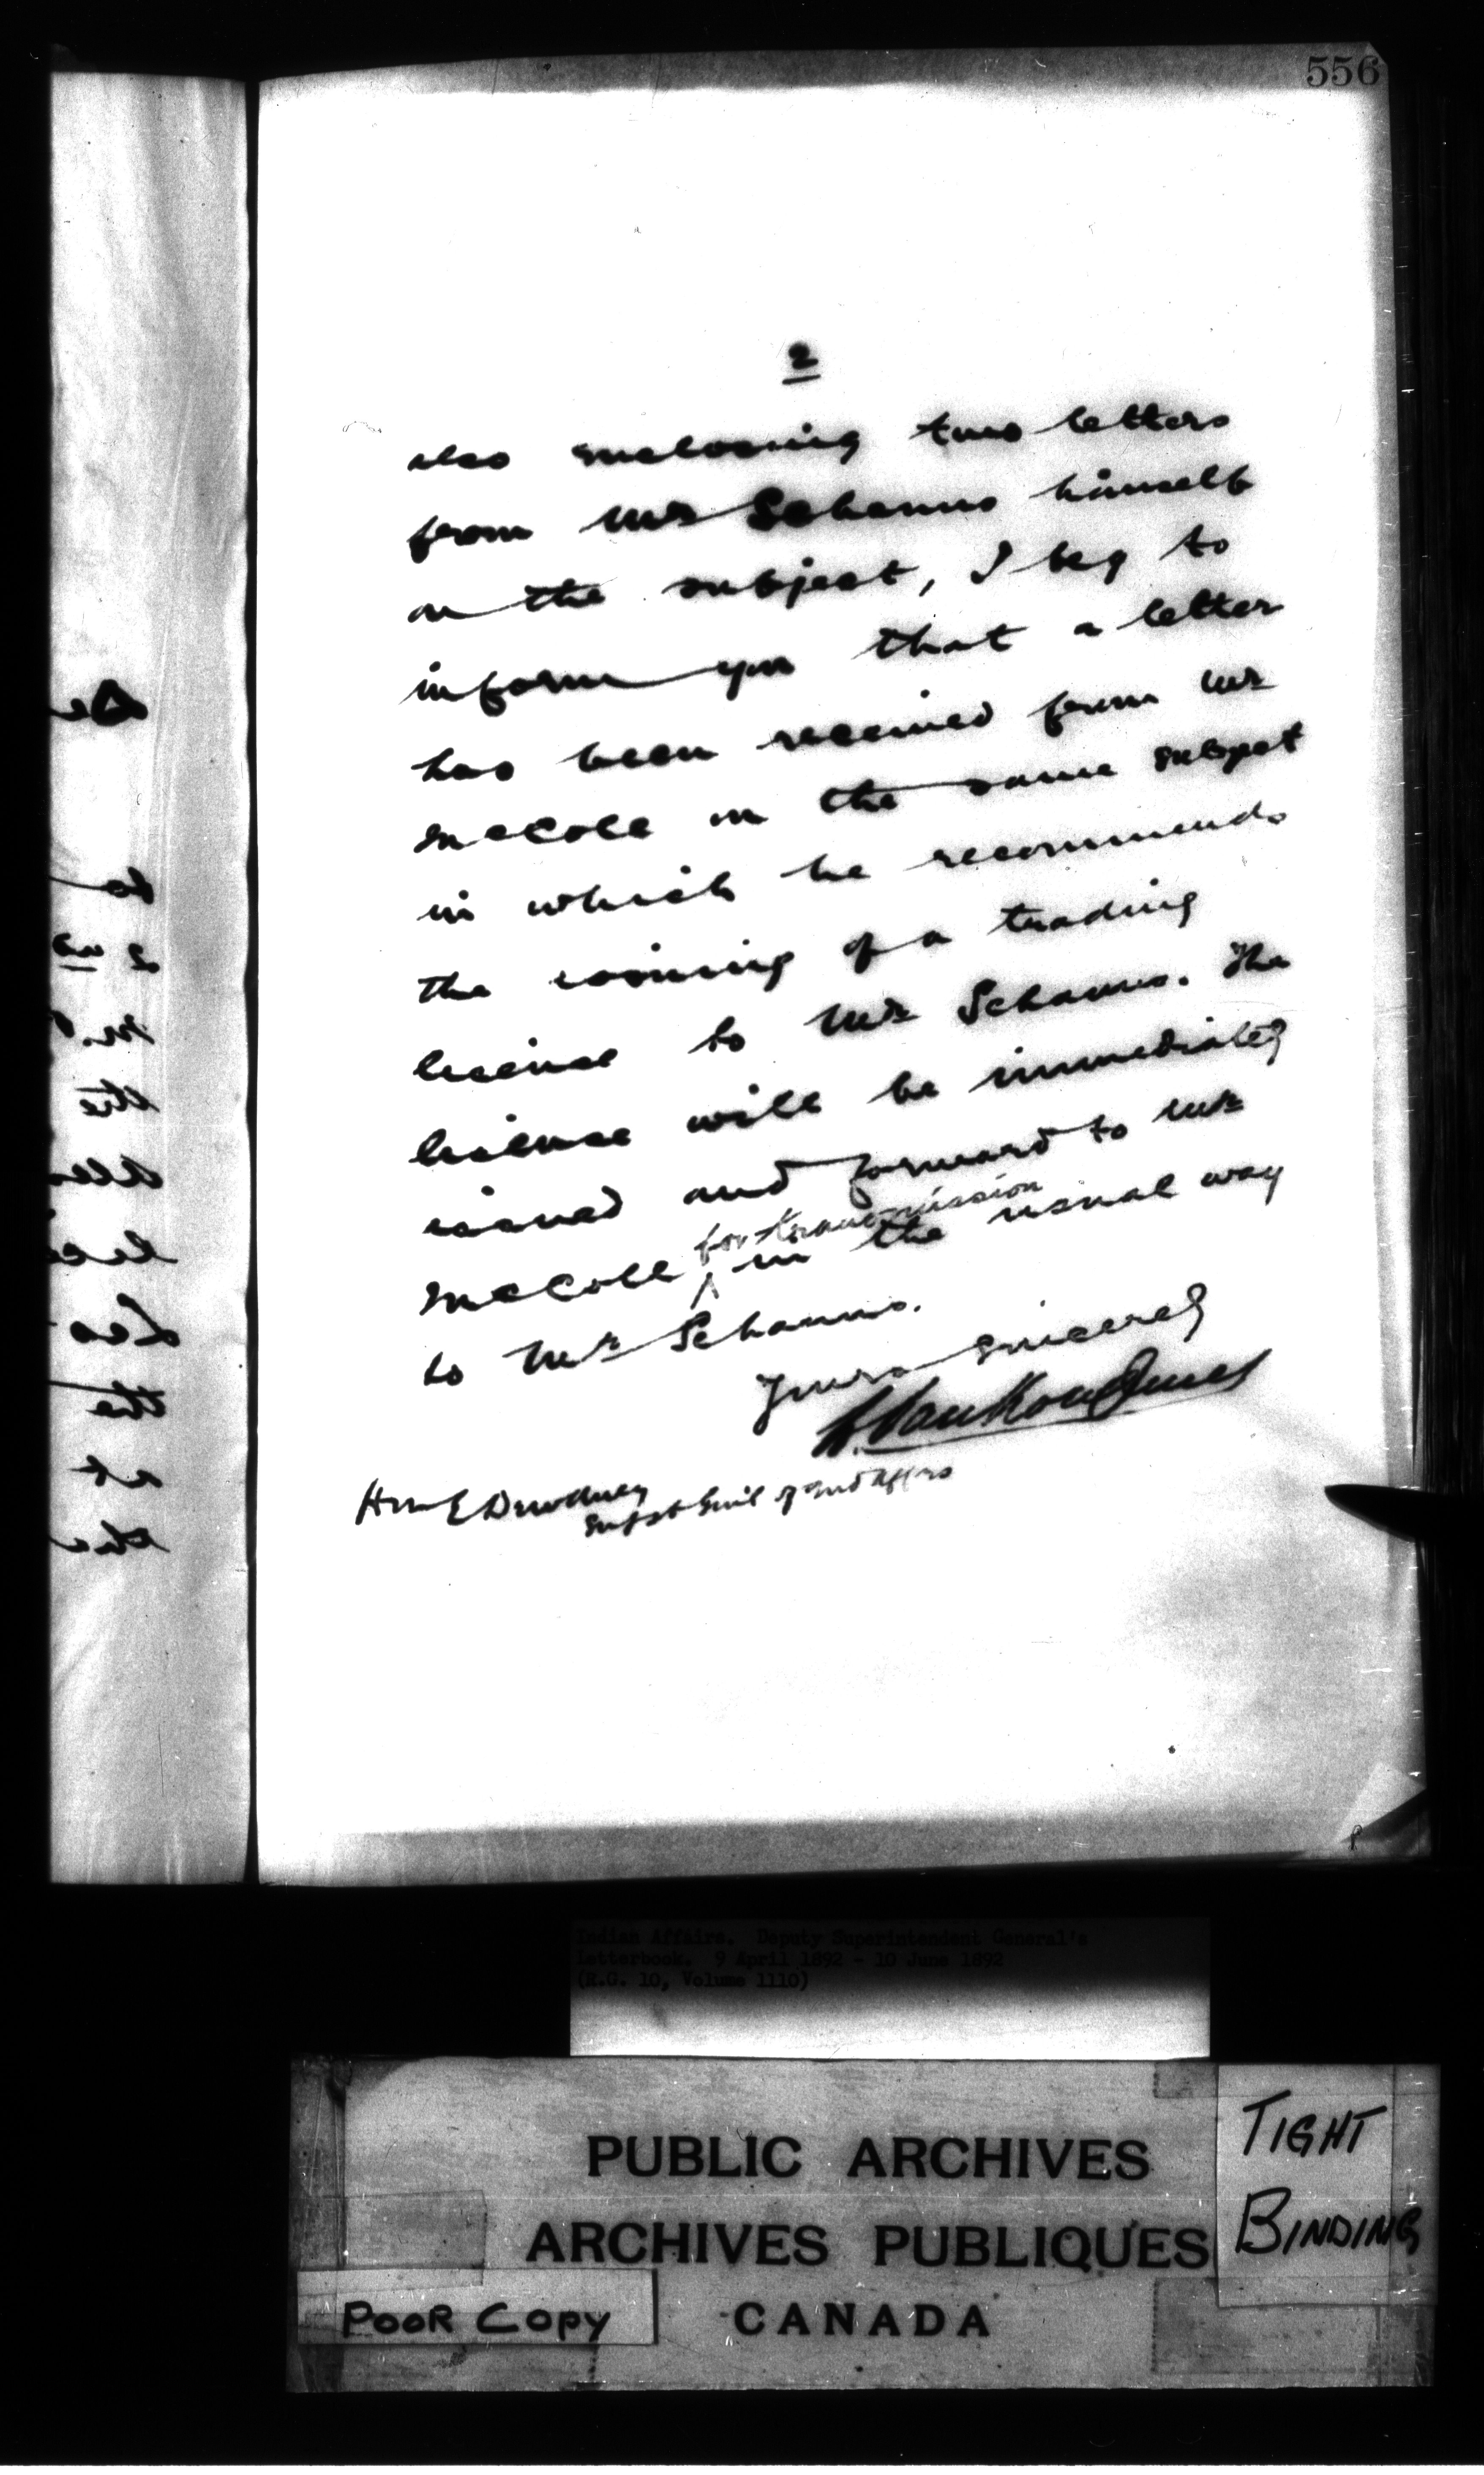 556
2
also enclosing two letters
from Mr Schanus himself
on the subject, I beg to
inform you that a letter
has been received from Mr
McColl on the same subject
in which he recommends
the issuing of a trading
license to Mr Schanus. The
license will be immediately
issued and forward to Mr
for transmission
McColl ^ in the usual way
to Mr Schanus.
Yours sincerely
L. VanKoughnet
Hon E Dewdney
Supt Genl of Ind Affrs
Indian Affairs. Deputy Superintendent General's
Letterbook. 9 April 1892 - 10 June 1892
(R.G. 10, Volume 1110)
PUBLIC ARCHIVES
ARCHIVES PUBLIQUES
CANADA
TIGHT
BINDING
POOR COPY